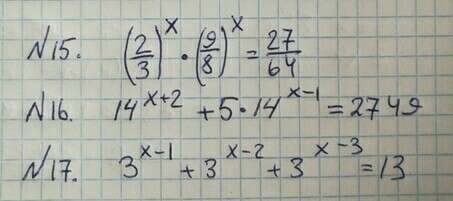 N15. (2/3)^x · (9/8)^x = 27/64
N16. 14^(x+2) + 5·14^(x-1) = 2749
N17. 3^(x-1) + 3^(x-2) + 3^(x-3) = 13